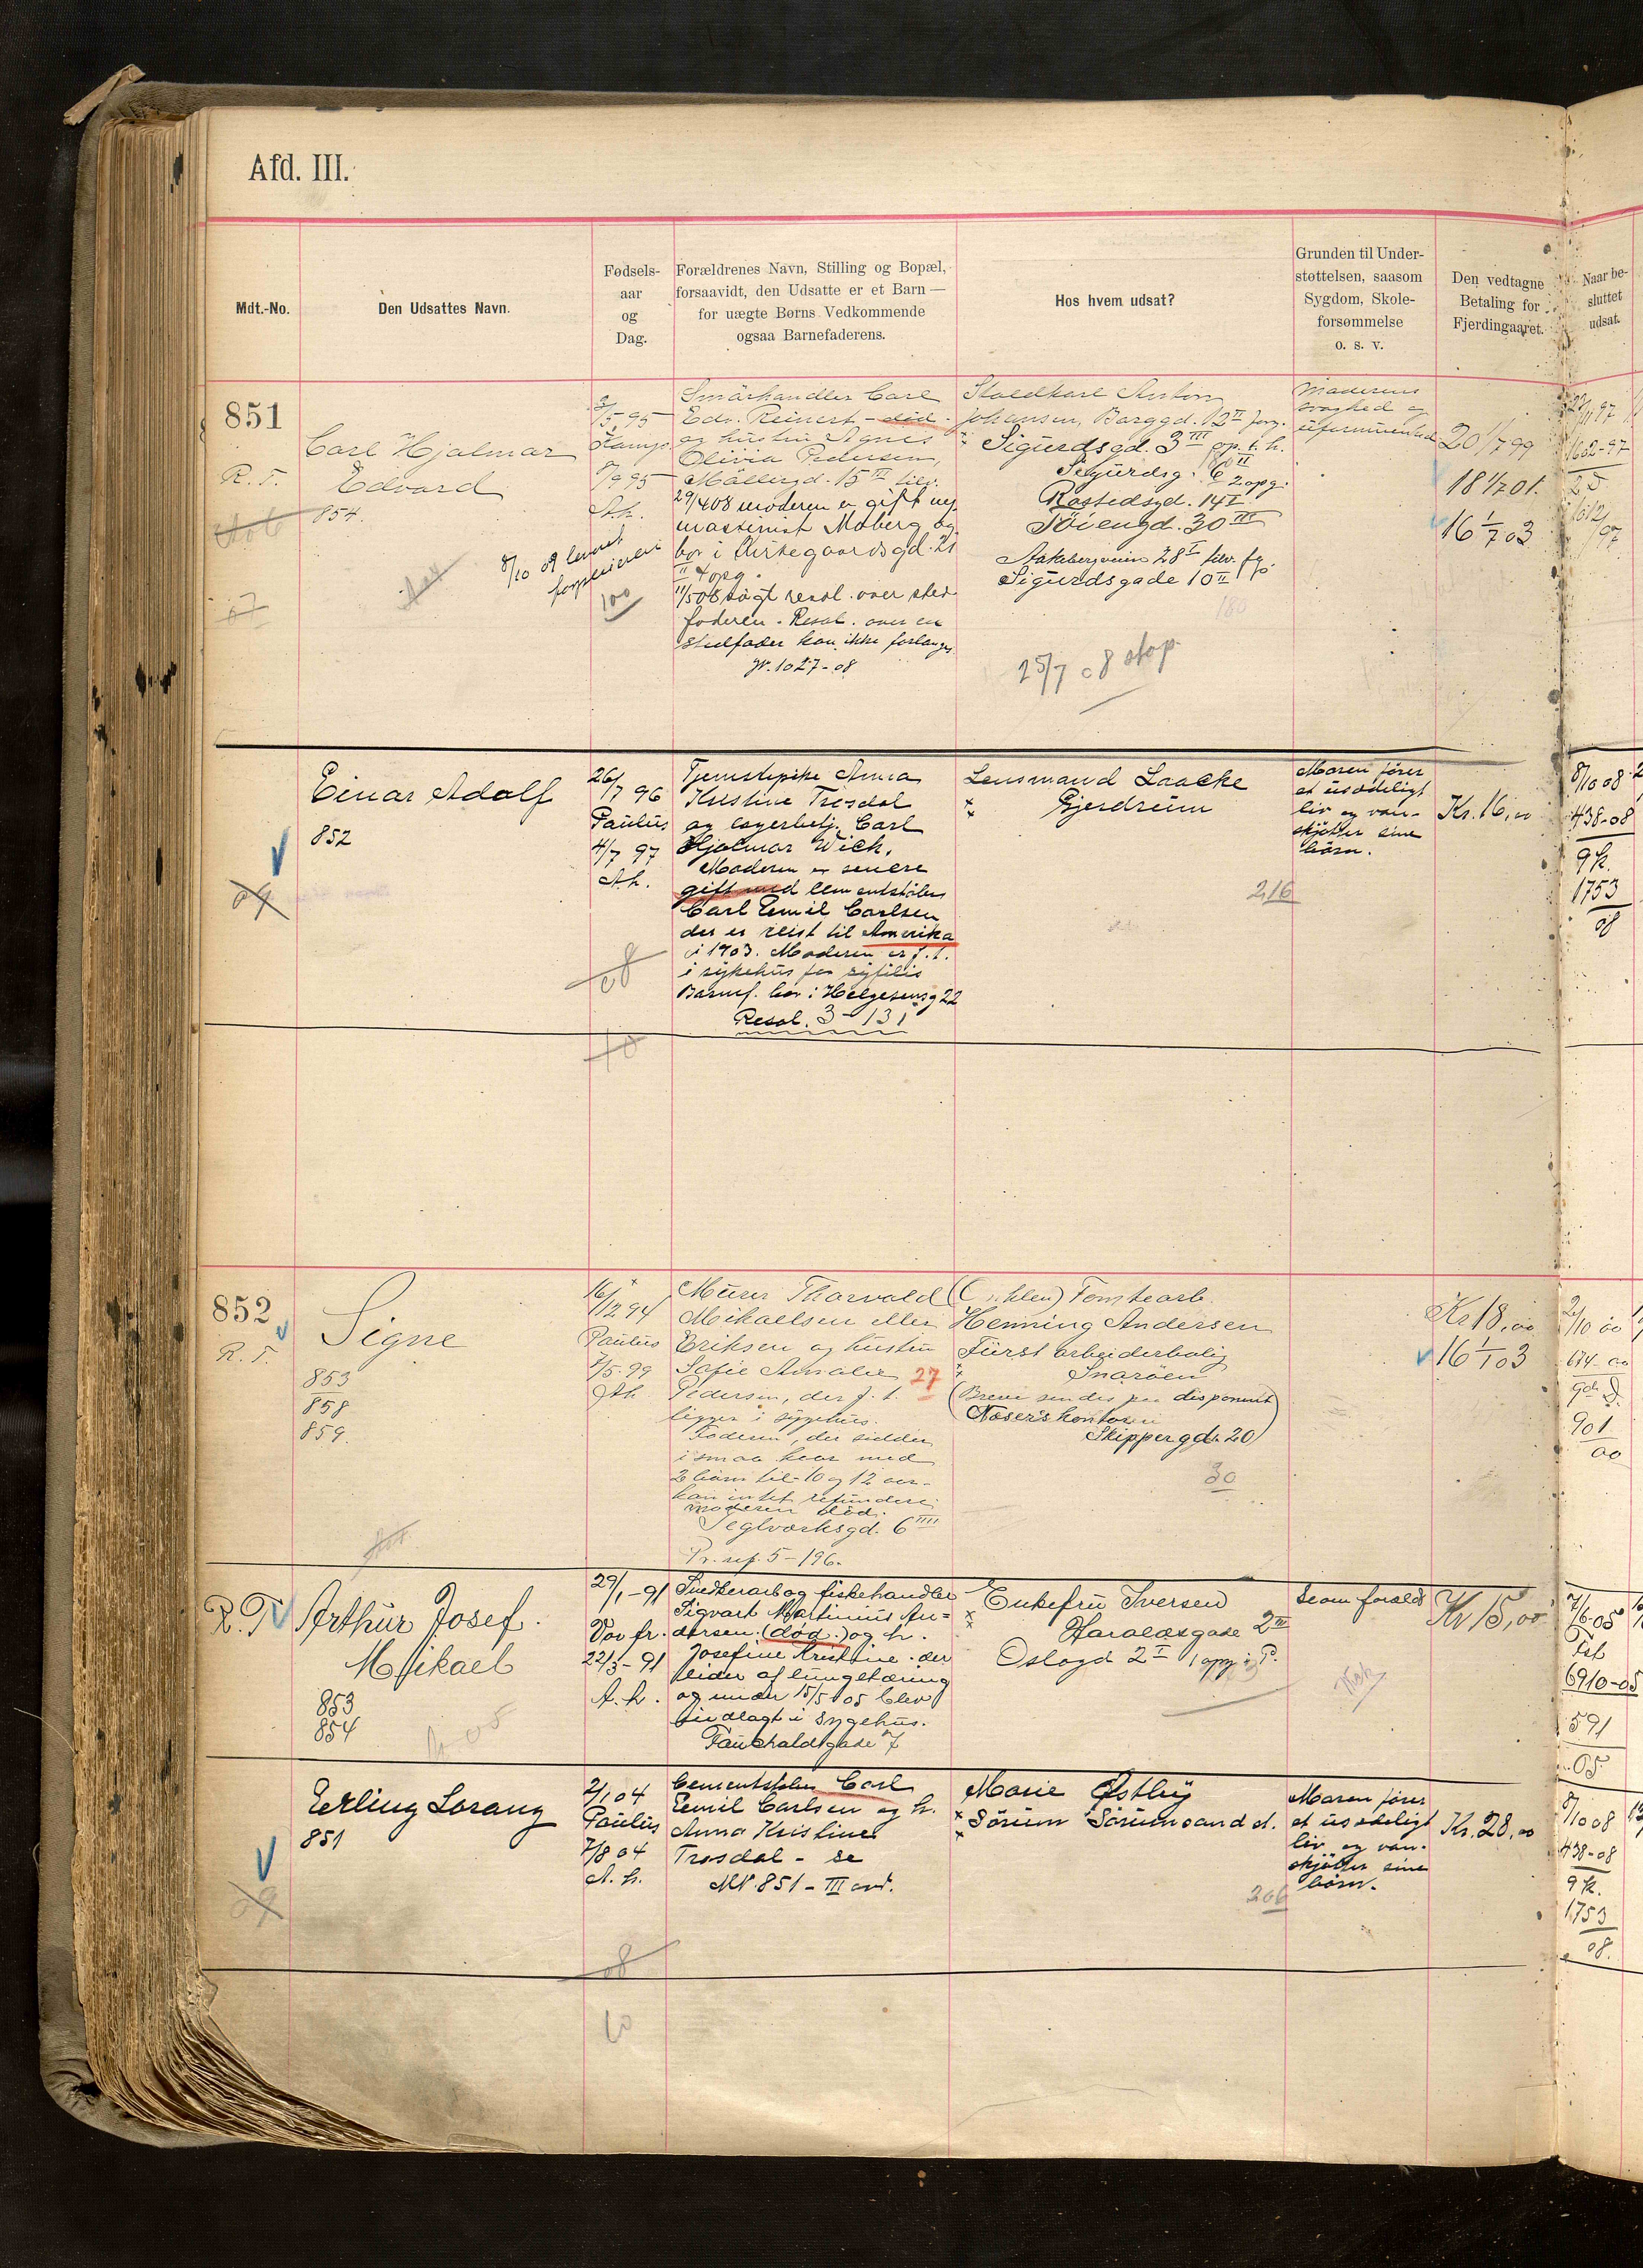 Afd. III.
Mdt.-No.
Den Udsattes Navn.
Fødsels-
aar
og
Dag.
Forældrenes Navn, Stilling og Bopæl,
forsaavidt, den Udsatte er et Barn —
for uægte Børns Vedkommende
ogsaa Barnefaderens.
Hos hvem udsat?
Grunden til Under-
støttelsen, saasom
Sygdom, Skole-
forsømmelse
o. s. v.
Den vedtagne
Betaling for
Fjerdingaaret.
Naar be-
sluttet
udsat.
851
R. T.
Carl Hjalmar
Edvard
854.
8/10 09 leveret
2/5 95
Kamp
8/9 95
A.h.
100
Smørhandler Carl
Edv. Reinert - død
og hustru Agnes
Olivia Pedersen,
Møllergd. 15 III tilv.
29/4 08 moderen er gift m.
maskinist Moberg og
bor i Kirkegaardsgd. 21
II 4 opg.
11/5 08 søgt resol. over sted-
faderen. Resol. over en
stedfader kan ikke forlanges
Jr. 1027-08
Staldkarl Anton
Johansen, Borggd. 12 II forg.
Sigurdsgd. 3 III op. t. h.
Sigurdsg. 6 II
2 opg.
Rostedsgd. 14 I
Tøiengd. 30 III
Aakebergveien 28 I tilv.
Sigurdsgade 10 II
180
25/7 08 stop.
Moderens
svaghed og
uformuenhed
20 1/7 99
18 1/7 01.
16 1/7 03
27/11 97
1602-97
25
1612/97
Einar Adolf
852
09
26/7 96
Paulus
4/7 97
A.h.
08
10
Tjenestepike Anna
Kristine Trosdal
og lagerbetj. Carl
Hjalmar Wick.
Moderen er senere
gift med cementstøber
Carl Emil Carlsen
der er reist til Amerika
i 1903. Moderen er f. t.
i sykehus for syfilis
Barnef. bor i Helgesensg 22
Resol. 3 - 131
Lensmand Laacke
Gjerdrum
216
Moren fører
et usædeligt
liv og van-
skjøtter sine
børn.
Kr. 16,00
8/10 08
438-08
9 k.
1753
08
852
R. T.
Signe
853
858
859.
16/12 94
Paulus
7/5 99
A.h.
Murer Thorvald
Mikaelsen eller
Eriksen og hustru
Sofie Amalie 27
Pedersen, der f. t.
ligger i sygehus.
Faderen, der sidder
i smaa kaar med
2 børn til 10 og 12 aar-
kan intet refundere.
moderen død.
Teglverksgd. 6 IIII
Pr. ref. 5 - 196.
(Onklen) Tomtearb.
Henning Andersen
Fürst arbeiderbolig
Snarøen
(Breve sendes paa disponent
Næser's kontor
Skippergd. 20)
30
Kr 18,00
16 1/1 03
2/10 00
674-00
9de D.
901
00
R. T.
Arthur Josef.
Mikael
853
854
29/1 - 91
Vor fr.
22/3 - 91
A. h.
Snedkerarb og fiskehandler
Sigvart Martinius An=
dersen. (død.) og h.
Josefine Kristine. der
lider af lungetæring
og under 15/5 05 blev
indlagt i sygehus.
Fauchaldsgade 7
Enkefru Iversen
Haraldsgade 2 III
Oslogd 2 I 1 opg.
Kr 15,00
7/6-05
6910-05
591
05.
Erling Lorang
851
09
2/1 04
Paulus
7/8 04
A. h.
08
10
Cementstøber Carl
Emil Carlsen og h.
Anna Kristine
Trosdal - se
MN. 851 - III avd.
Marie Østby
Sørum Sørumsand st.
206
Moren fører
et usædeligt
liv og van-
skjøtter sine
børn.
Kr. 28,00
8/10 08
438-08
9 k.
1753
08.